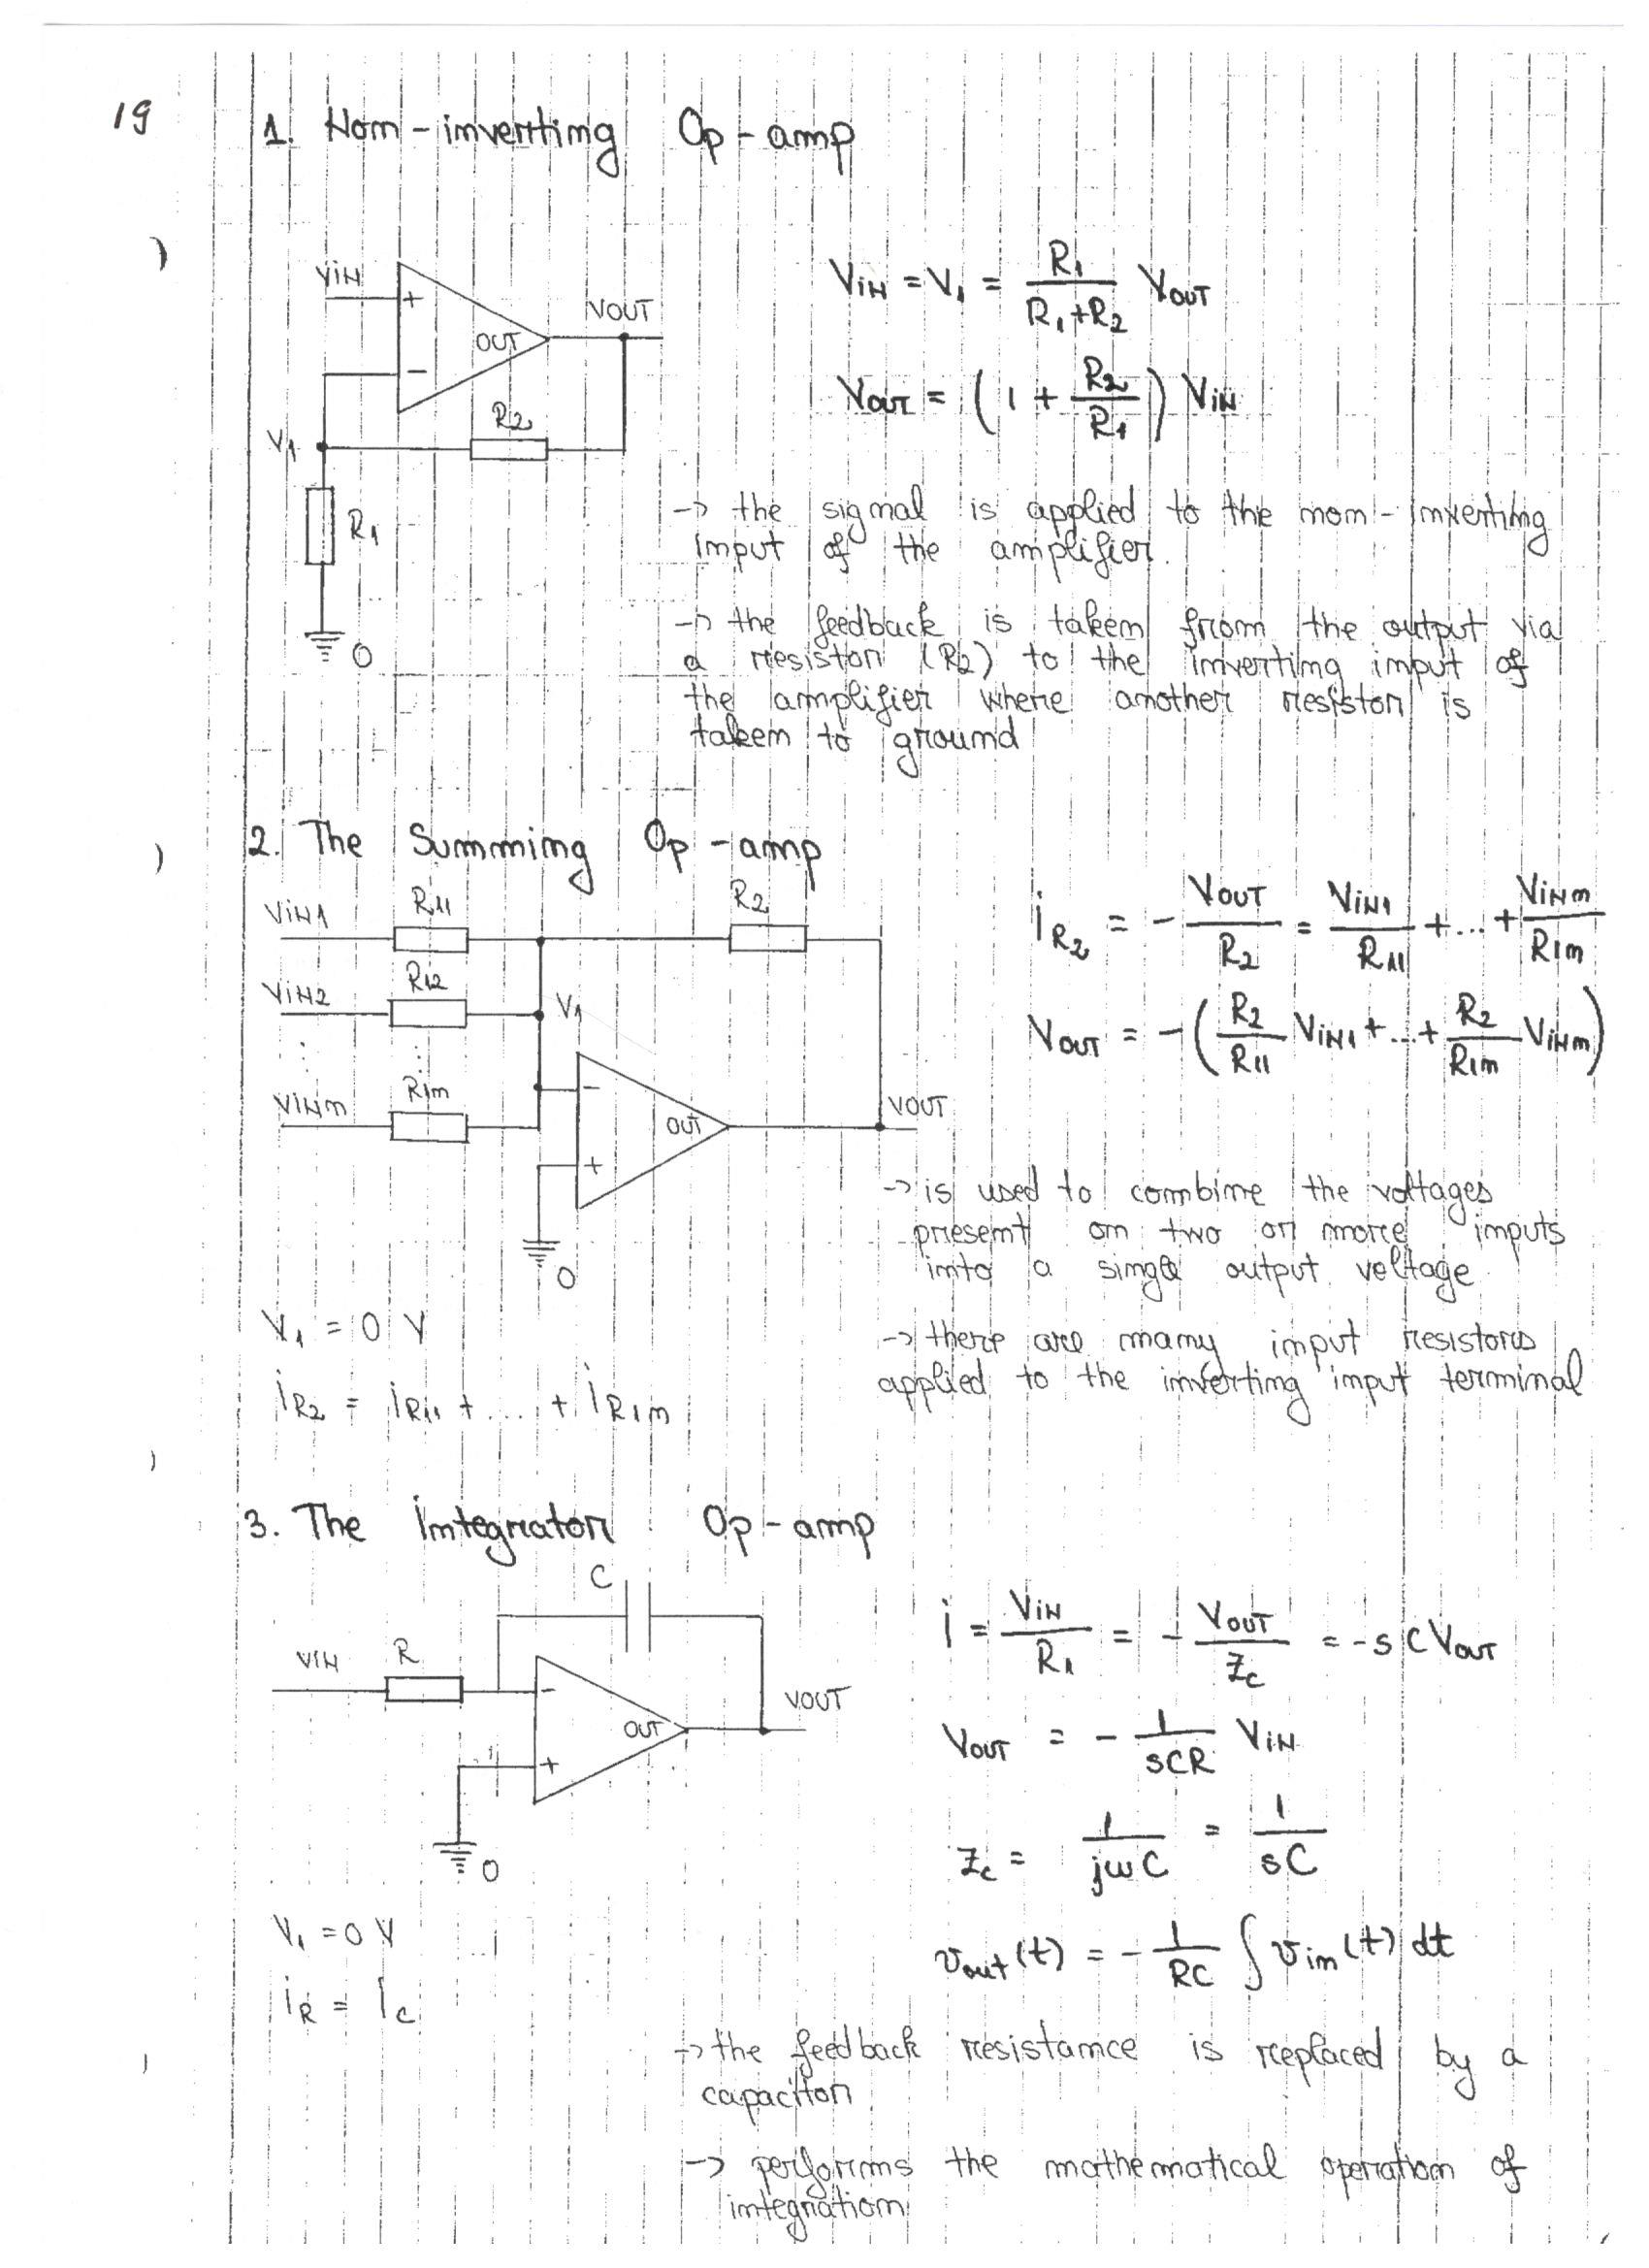 19
1. Non-inverting Op-amp
VIN
+
OUT
VOUT
-
R2
V1
R1
0
VIN = V1 = R1/(R1+R2) VOUT
VOUT = (1 + R2/R1) VIN
-> the signal is applied to the non-inverting
input of the amplifier.
-> the feedback is taken from the output via
a resistor (R2) to the inverting input of
the amplifier where another resistor is
taken to ground
2. The Summing Op-amp
VIN1
R11
R2
VIN2
R12
V1
VINn
R1n
-
OUT
VOUT
+
0
iR2 = - VOUT/R2 = VIN1/R11 + ... + VINn/R1n
VOUT = -(R2/R11 VIN1 + ... + R2/R1n VINn)
-> is used to combine the voltages
present on two or more inputs
into a single output voltage
V1 = 0 V
iR2 = iR11 + .... + iR1n
-> there are many input resistors
applied to the inverting input terminal
3. The Integrator Op-amp
C
VIN
R
-
OUT
VOUT
+
0
i = VIN/R1 = - VOUT/Zc = -sCVOUT
VOUT = - 1/sCR VIN
Zc = 1/jωC = 1/sC
V1 = 0 V
iR = Ic
vout(t) = - 1/RC ∫ vin(t) dt
-> the feedback resistance is replaced by a
capacitor
-> performs the mathematical operation of
integration